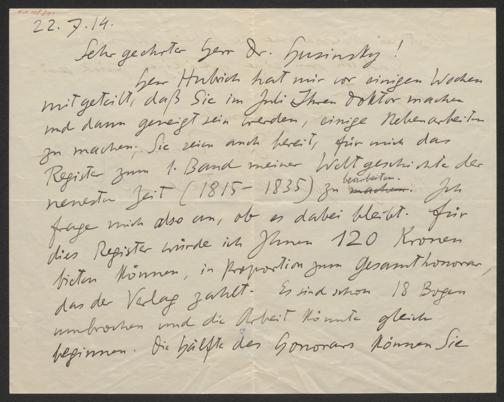 22.7.14.
Sehr geehrter Herr Dr. Husinsky!
Herr Hubrich hat mir vor einigen Wochen
mitgeteilt, daß Sie im Juli Ihren Doktor machen
und dann geneigt sein werden, einige Nebenarbeiten
zu machen; Sie seien auch bereit, für mich das
Register zum 1. Band meiner Weltgeschichte der
bearbeiten.
neuesten Zeit (1815-1835) zu machen. Ich
frage mich also an, ob es dabei bleibt. Für
dies Register würde ich Ihnen 120 Kronen
bieten können, in Proportion zum Gesamthonorar,
das der Verlag zahlt. Es sind schon 18 Bogen
umbrochen und die Arbeit könnte gleich
beginnen. Die Hälfte des Honorars können Sie